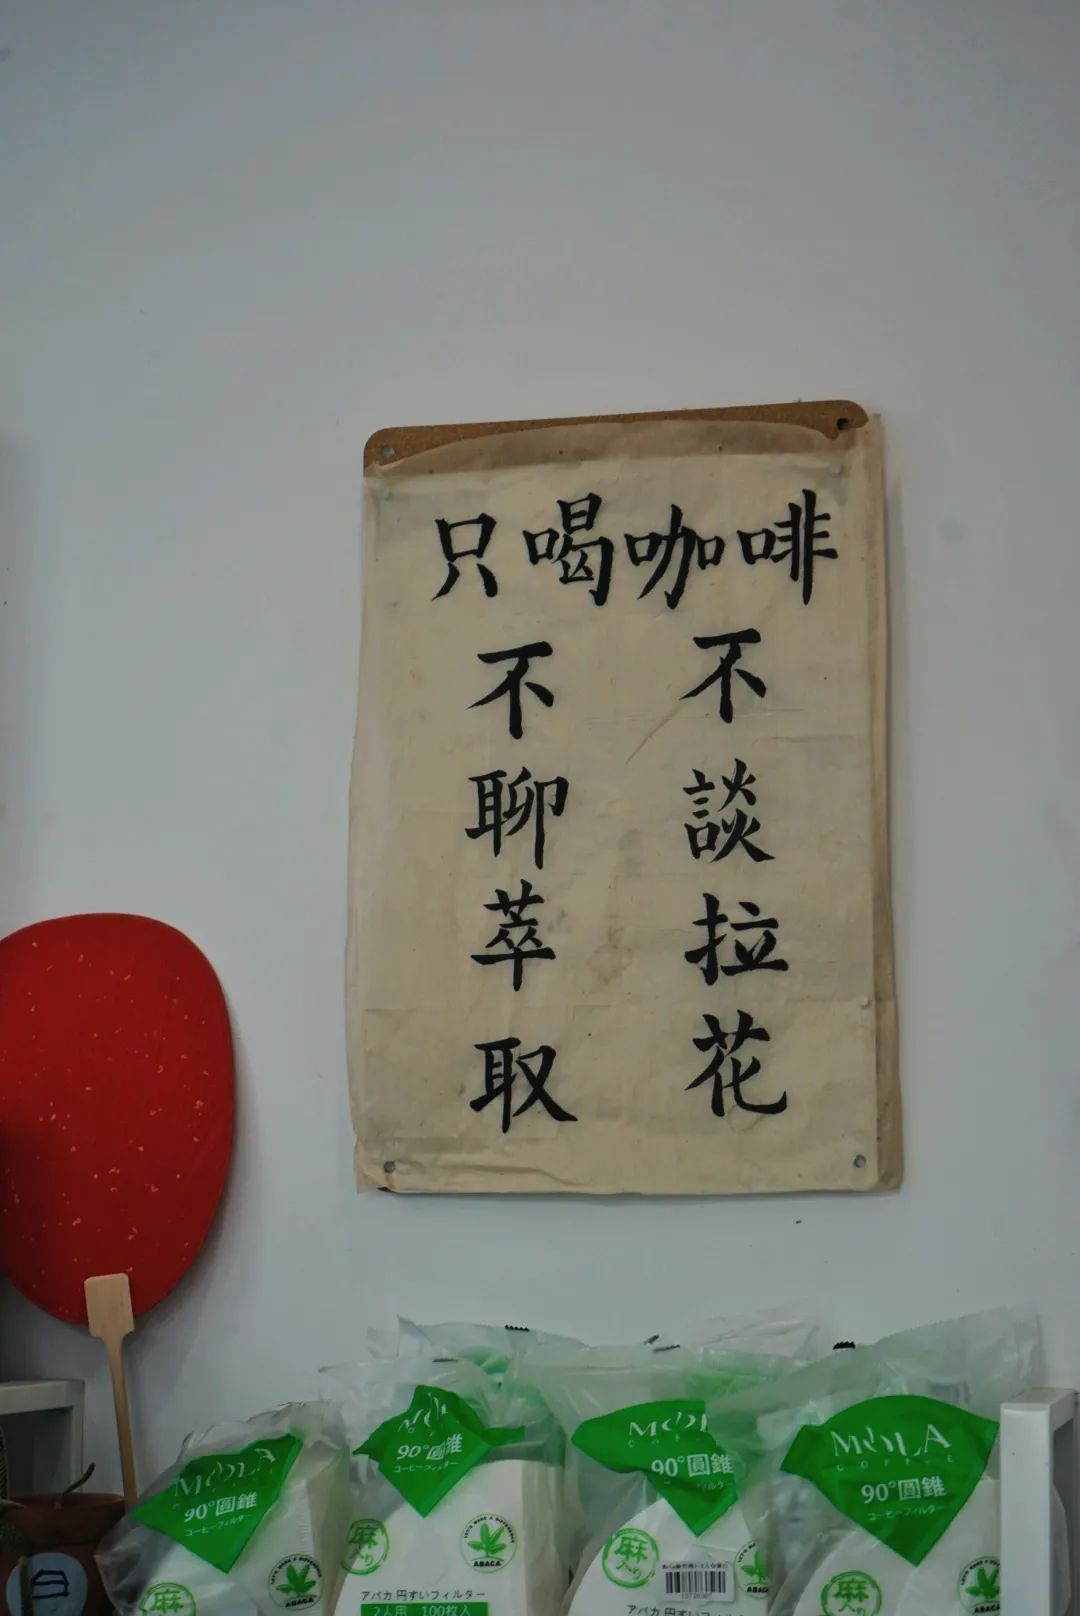 只喝咖啡
不談拉花
不聊萃取
MOLA
90°圓錐
コーヒーフィルター
MOLA
90°圓錐
コーヒーフィルター
麻
入り
LET'S MAKE A DIFFERENCE
ABACA
アバカ 円すいフィルター
2人用 100枚入
MOLA
COFFEE
90°圓錐
コーヒーフィルター
麻
入り
アバカ 円すいフィルター
MOLA
COFFEE
90°圓錐
コーヒーフィルター
麻
ABACA